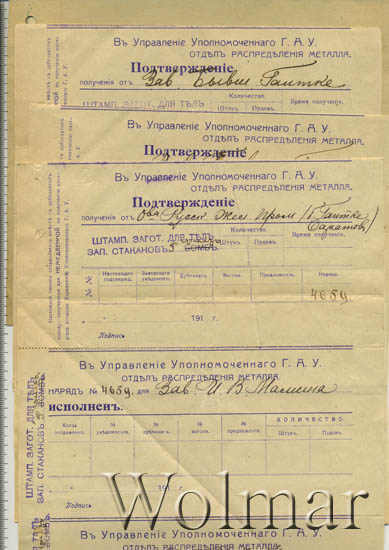 Въ Управленіе Уполномоченнаго Г. А. У.
ОТДѢЛЪ РАСПРЕДѢЛЕНІЯ МЕТАЛЛА.
Подтвержденіе
полученія отъ Зав. Бывш Гантке
Количество.
ШТАМП. ЗАГОТ. ДЛЯ ТѢЛЪ
Штукъ. Пудовъ. Время полученія.
Въ Управленіе Уполномоченнаго Г. А. У.
ОТДѢЛЪ РАСПРЕДѢЛЕНІЯ МЕТАЛЛА.
Подтвержденіе
Въ Управленіе Уполномоченнаго Г. А. У.
ОТДѢЛЪ РАСПРЕДѢЛЕНІЯ МЕТАЛЛА.
Подтвержденіе
полученія отъ Ова Русск Жел Пром (Гантке
Саратовъ)
Количество.
ШТАМП. ЗАГОТ. ДЛЯ ТѢЛЪ
ЗАП. СТАКАНОВЪ 5 БОМБЪ.
Штукъ. Пудовъ. Время полученія.
№№ Настоящаго подтвержд. Заводскаго увѣдомлен. Дубликата. Вагона. Предложенія. Нарядъ.
4659
191 г.
Подпись
Въ Управленіе Уполномоченнаго Г. А. У.
ОТДѢЛЪ РАСПРЕДѢЛЕНІЯ МЕТАЛЛА.
НАРЯДЪ № 4659 для Зав. И. В.
исполненъ.
Когда отправлено. № увѣдомленія. № дубликата. № вагона. № предложенія. КОЛИЧЕСТВО.
Штукъ. Пудовъ.
ШТАМП. ЗАГОТ. ДЛЯ ТѢЛЪ
ЗАП. СТАКАНОВЪ 5 БОМБЪ.
191 г.
Подпись
Wolmar
Въ Управленіе Уполномоченнаго Г. А. У.
ОТДѢЛЪ РАСПРЕДѢЛЕНІЯ МЕТАЛЛА.